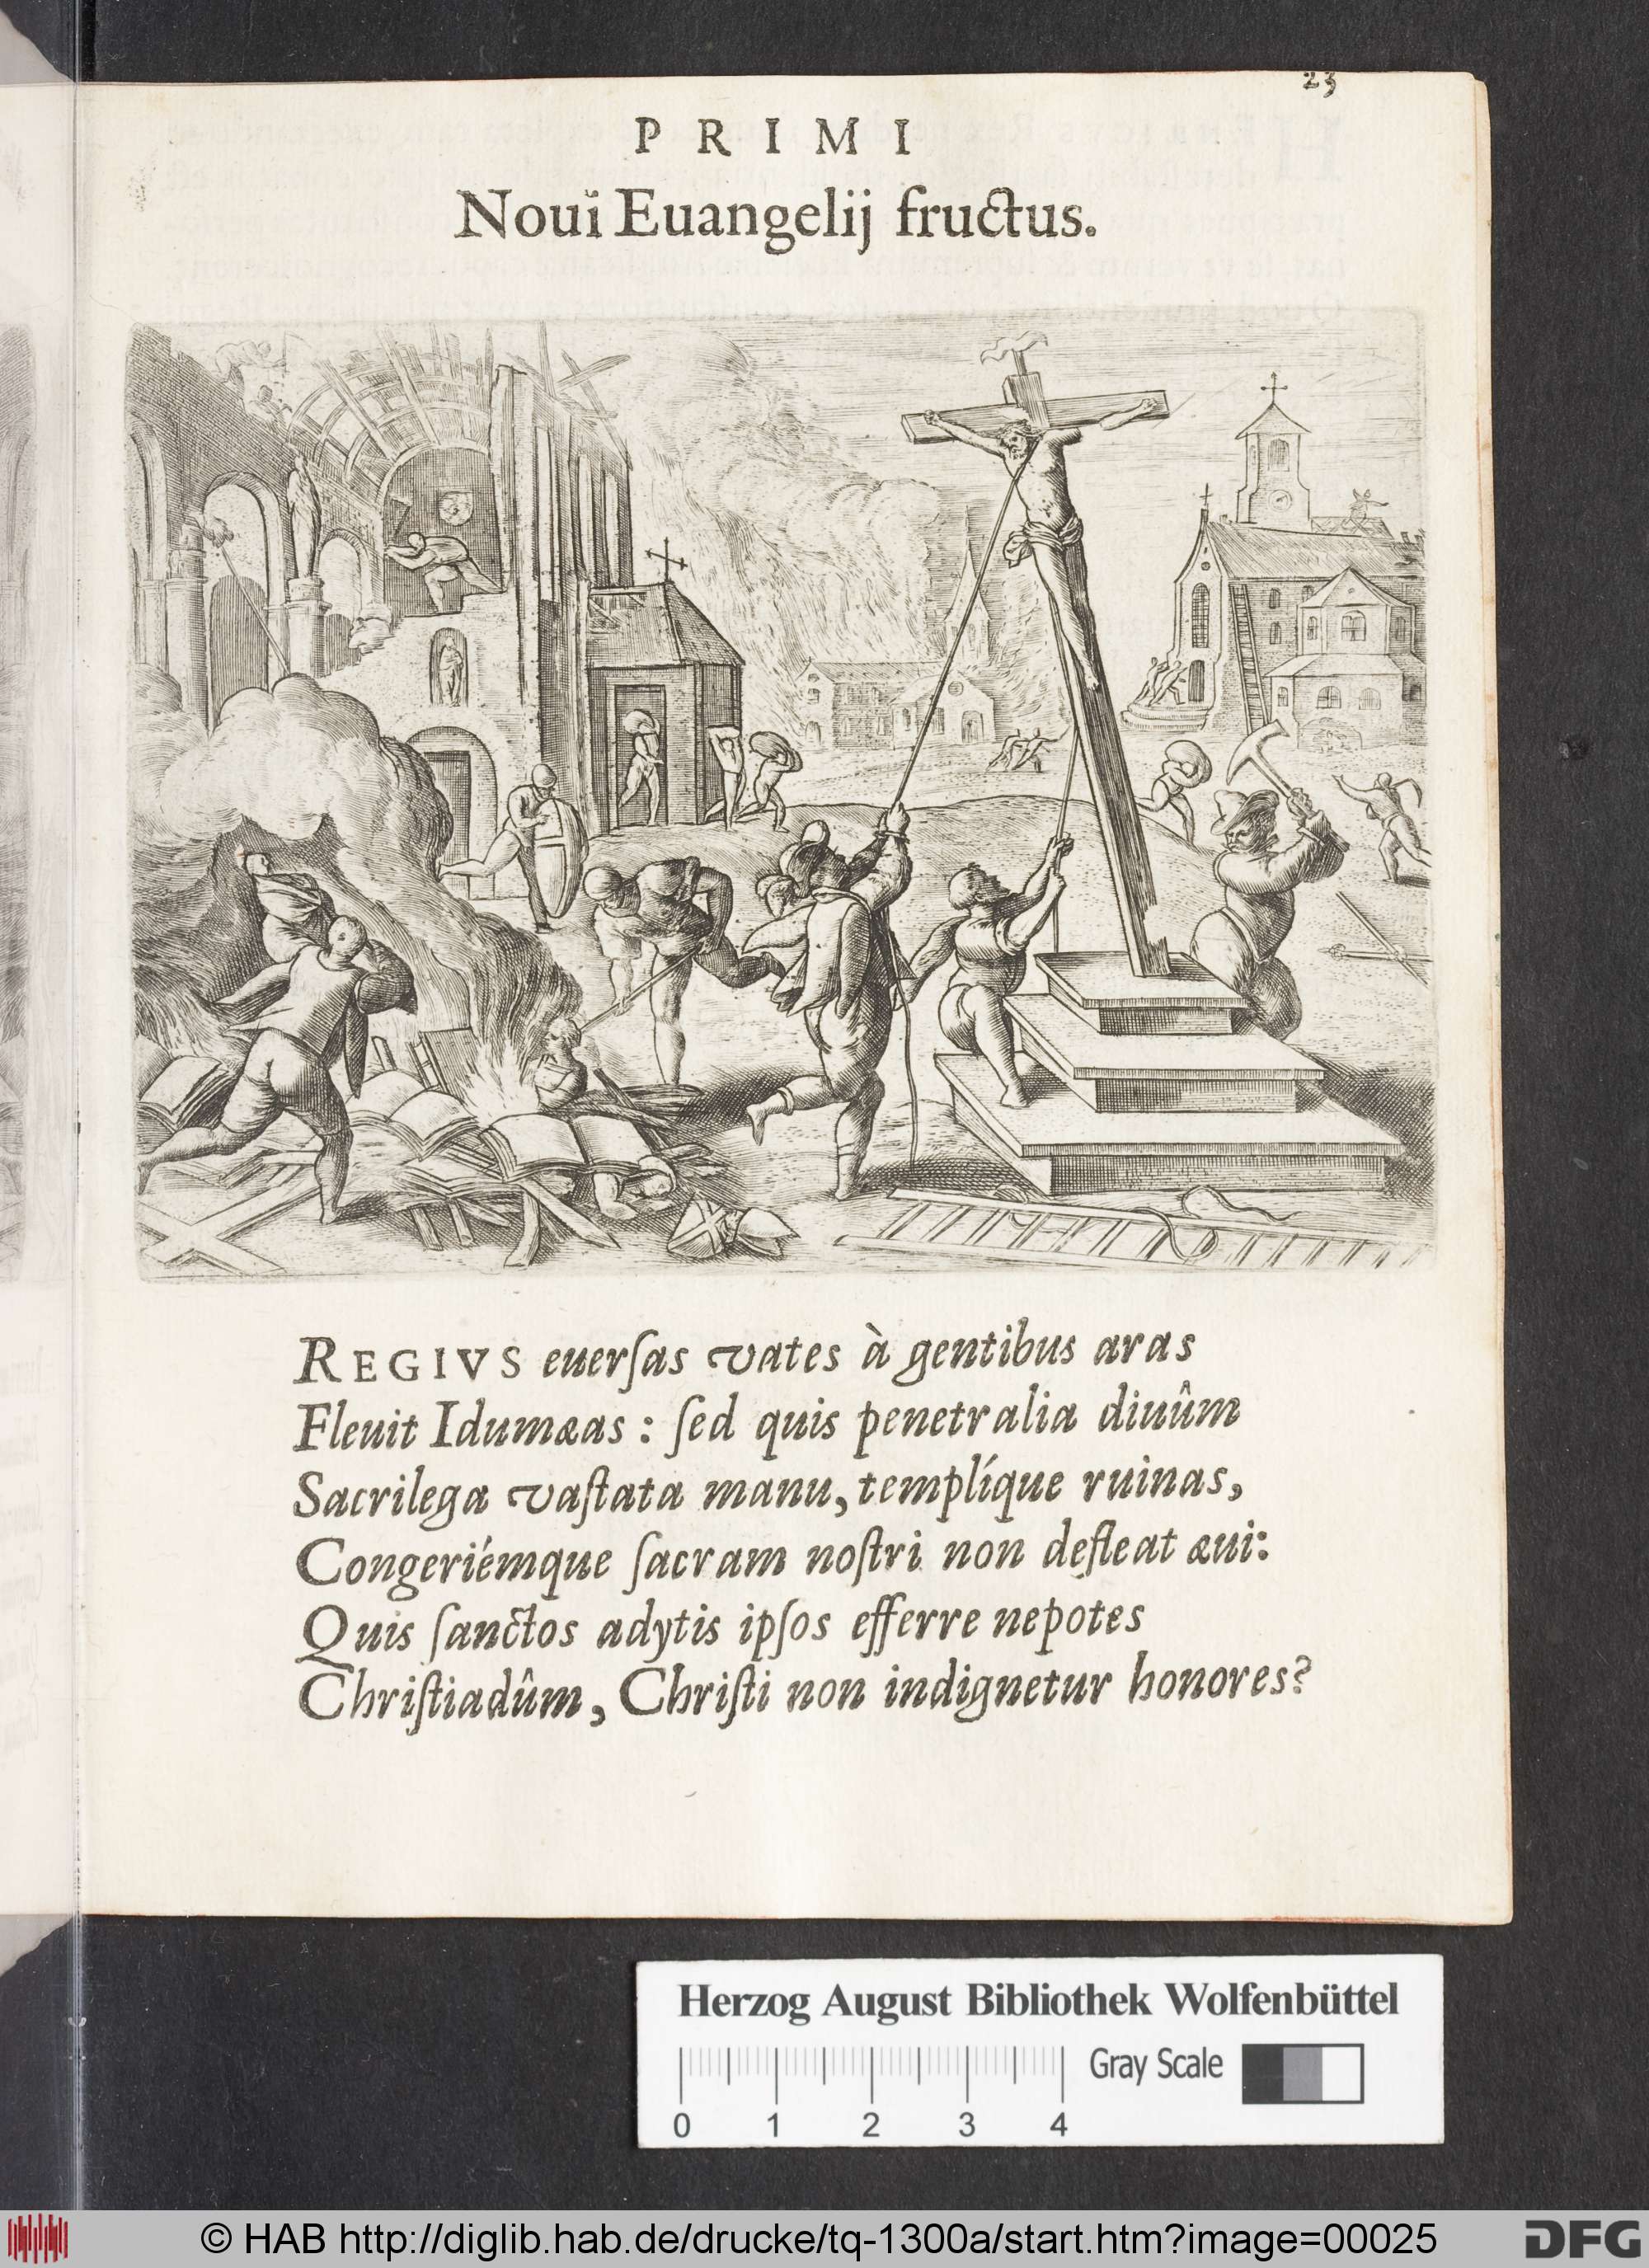 23
PRIMI
Nouĭ Euangelij fructus.
REGIVS euerſas vates à gentibus aras
Fleuit Idumæas : ſed quis penetralia diuûm
Sacrilega vaſtata manu, templíque ruinas,
Congeriémque ſacram noſtri non defleat æui:
Quis ſanctos adytis ipſos efferre nepotes
Chriſtiadûm, Chriſti non indignetur honores?
Herzog August Bibliothek Wolfenbüttel
Gray Scale
0 1 2 3 4
© HAB http://diglib.hab.de/drucke/tq-1300a/start.htm?image=00025
DFG